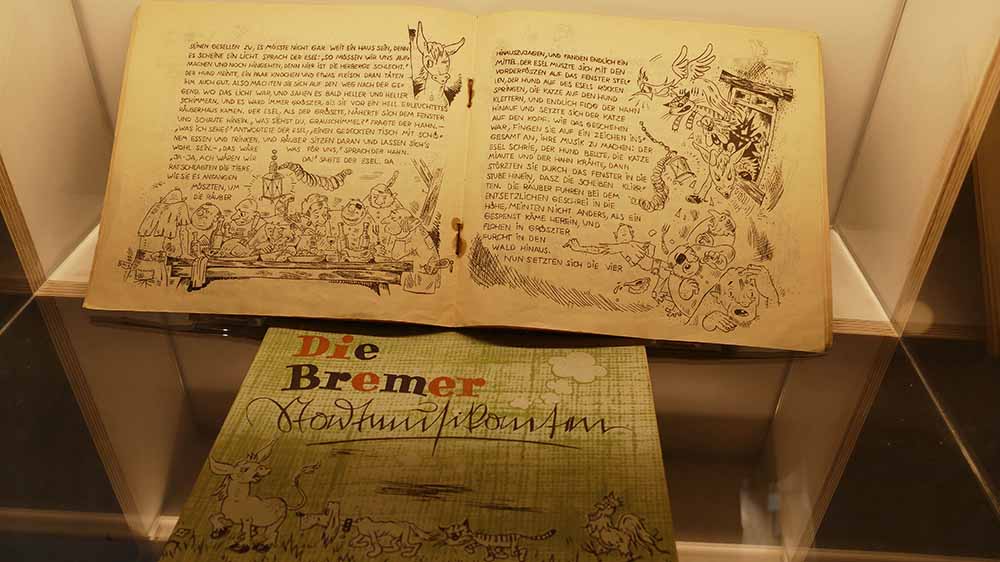 SEINEN GESELLEN ZU, ES MÜSSTE NICHT GAR WEIT EIN HAUS SEIN, DENN
ES SCHEINE EIN LICHT. SPRACH DER ESEL: „SO MÜSSEN WIR UNS AUF-
MACHEN UND NOCH HINGEHEN, DENN HIER IST DIE HERBERGE SCHLECHT."
DER HUND MEINTE, EIN PAAR KNOCHEN UND ETWAS FLEISCH DRAN TÄTEN
IHM AUCH GUT. ALSO MACHTEN SIE SICH AUF DEN WEG NACH DER GE-
GEND, WO DAS LICHT WAR, UND SAHEN ES BALD HELLER UND HELLER
SCHIMMERN, UND ES WARD IMMER GRÖSZER, BIS SIE VOR EIN HELL ERLEUCHTETES
RÄUBERHAUS KAMEN. DER ESEL, ALS DER GRÖSZTE, NÄHERTE SICH DEM FENSTER
UND SCHAUTE HINEIN. „WAS SIEHST DU, GRAUSCHIMMEL?" FRAGTE DER HAHN. –
„WAS ICH SEHE?" ANTWORTETE DER ESEL, „EINEN GEDECKTEN TISCH MIT SCHÖ-
NEM ESSEN UND TRINKEN, UND RÄUBER SITZEN DARAN UND LASSEN SICH'S
WOHL SEIN." – „DAS WÄRE WAS FÜR UNS," SPRACH DER HAHN.
„JA, JA, ACH WÄREN WIR DA!" SAGTE DER ESEL. DA
RATSCHLAGTEN DIE TIERE,
WIE SIE ES ANFANGEN
MÜSZTEN, UM
DIE RÄUBER
HINAUSZUJAGEN, UND FANDEN ENDLICH EIN
MITTEL. DER ESEL MUSZTE SICH MIT DEN
VORDERFÜSZEN AUF DAS FENSTER STEL-
LEN, DER HUND AUF DES ESELS RÜCKEN
SPRINGEN, DIE KATZE AUF DEN HUND
KLETTERN, UND ENDLICH FLOG DER HAHN
HINAUF UND SETZTE SICH DER KATZE
AUF DEN KOPF. WIE DAS GESCHEHEN
WAR, FINGEN SIE AUF EIN ZEICHEN INS-
GESAMT AN, IHRE MUSIK ZU MACHEN: DER
ESEL SCHRIE, DER HUND BELLTE, DIE KATZE
MIAUTE UND DER HAHN KRÄHTE, DANN
STÜRZTEN SIE DURCH DAS FENSTER IN DIE
STUBE HINEIN, DASZ DIE SCHEIBEN KLIRR-
TEN. DIE RÄUBER FUHREN BEI DEM
ENTSETZLICHEN GESCHREI IN DIE
HÖHE, MEINTEN NICHT ANDERS, ALS EIN
GESPENST KÄME HEREIN, UND
FLOHEN IN GRÖSZTER
FURCHT IN DEN
WALD HINAUS.
NUN SETZTEN SICH DIE VIER
Die
Bremer
Stadtmusikanten